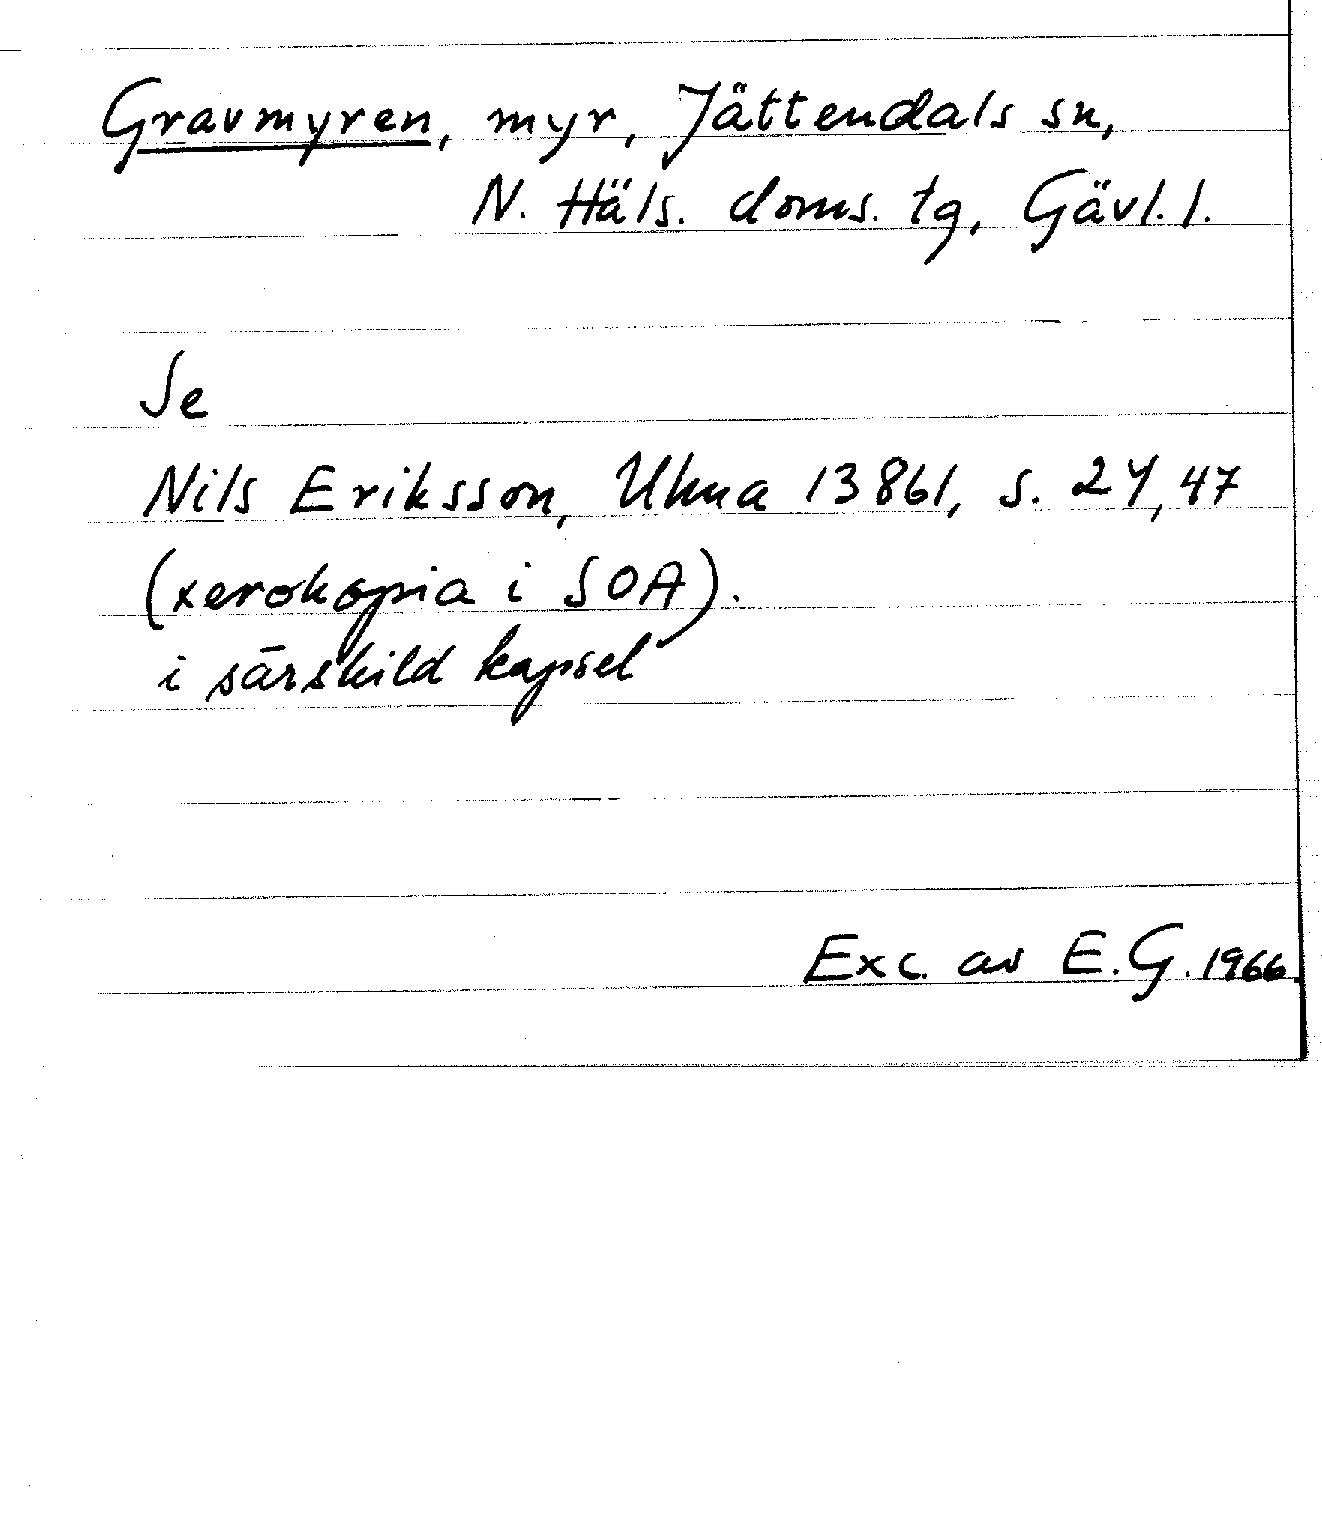 Gravmyren, myr, Jättendals sn,
N. Häls. doms. tg, Gävl. l.
Se
Nils Eriksson, Ulma 13861, s. 24, 47
(xerokopia i SOA).
i särskild kapsel
Exc. av E.G. 1966